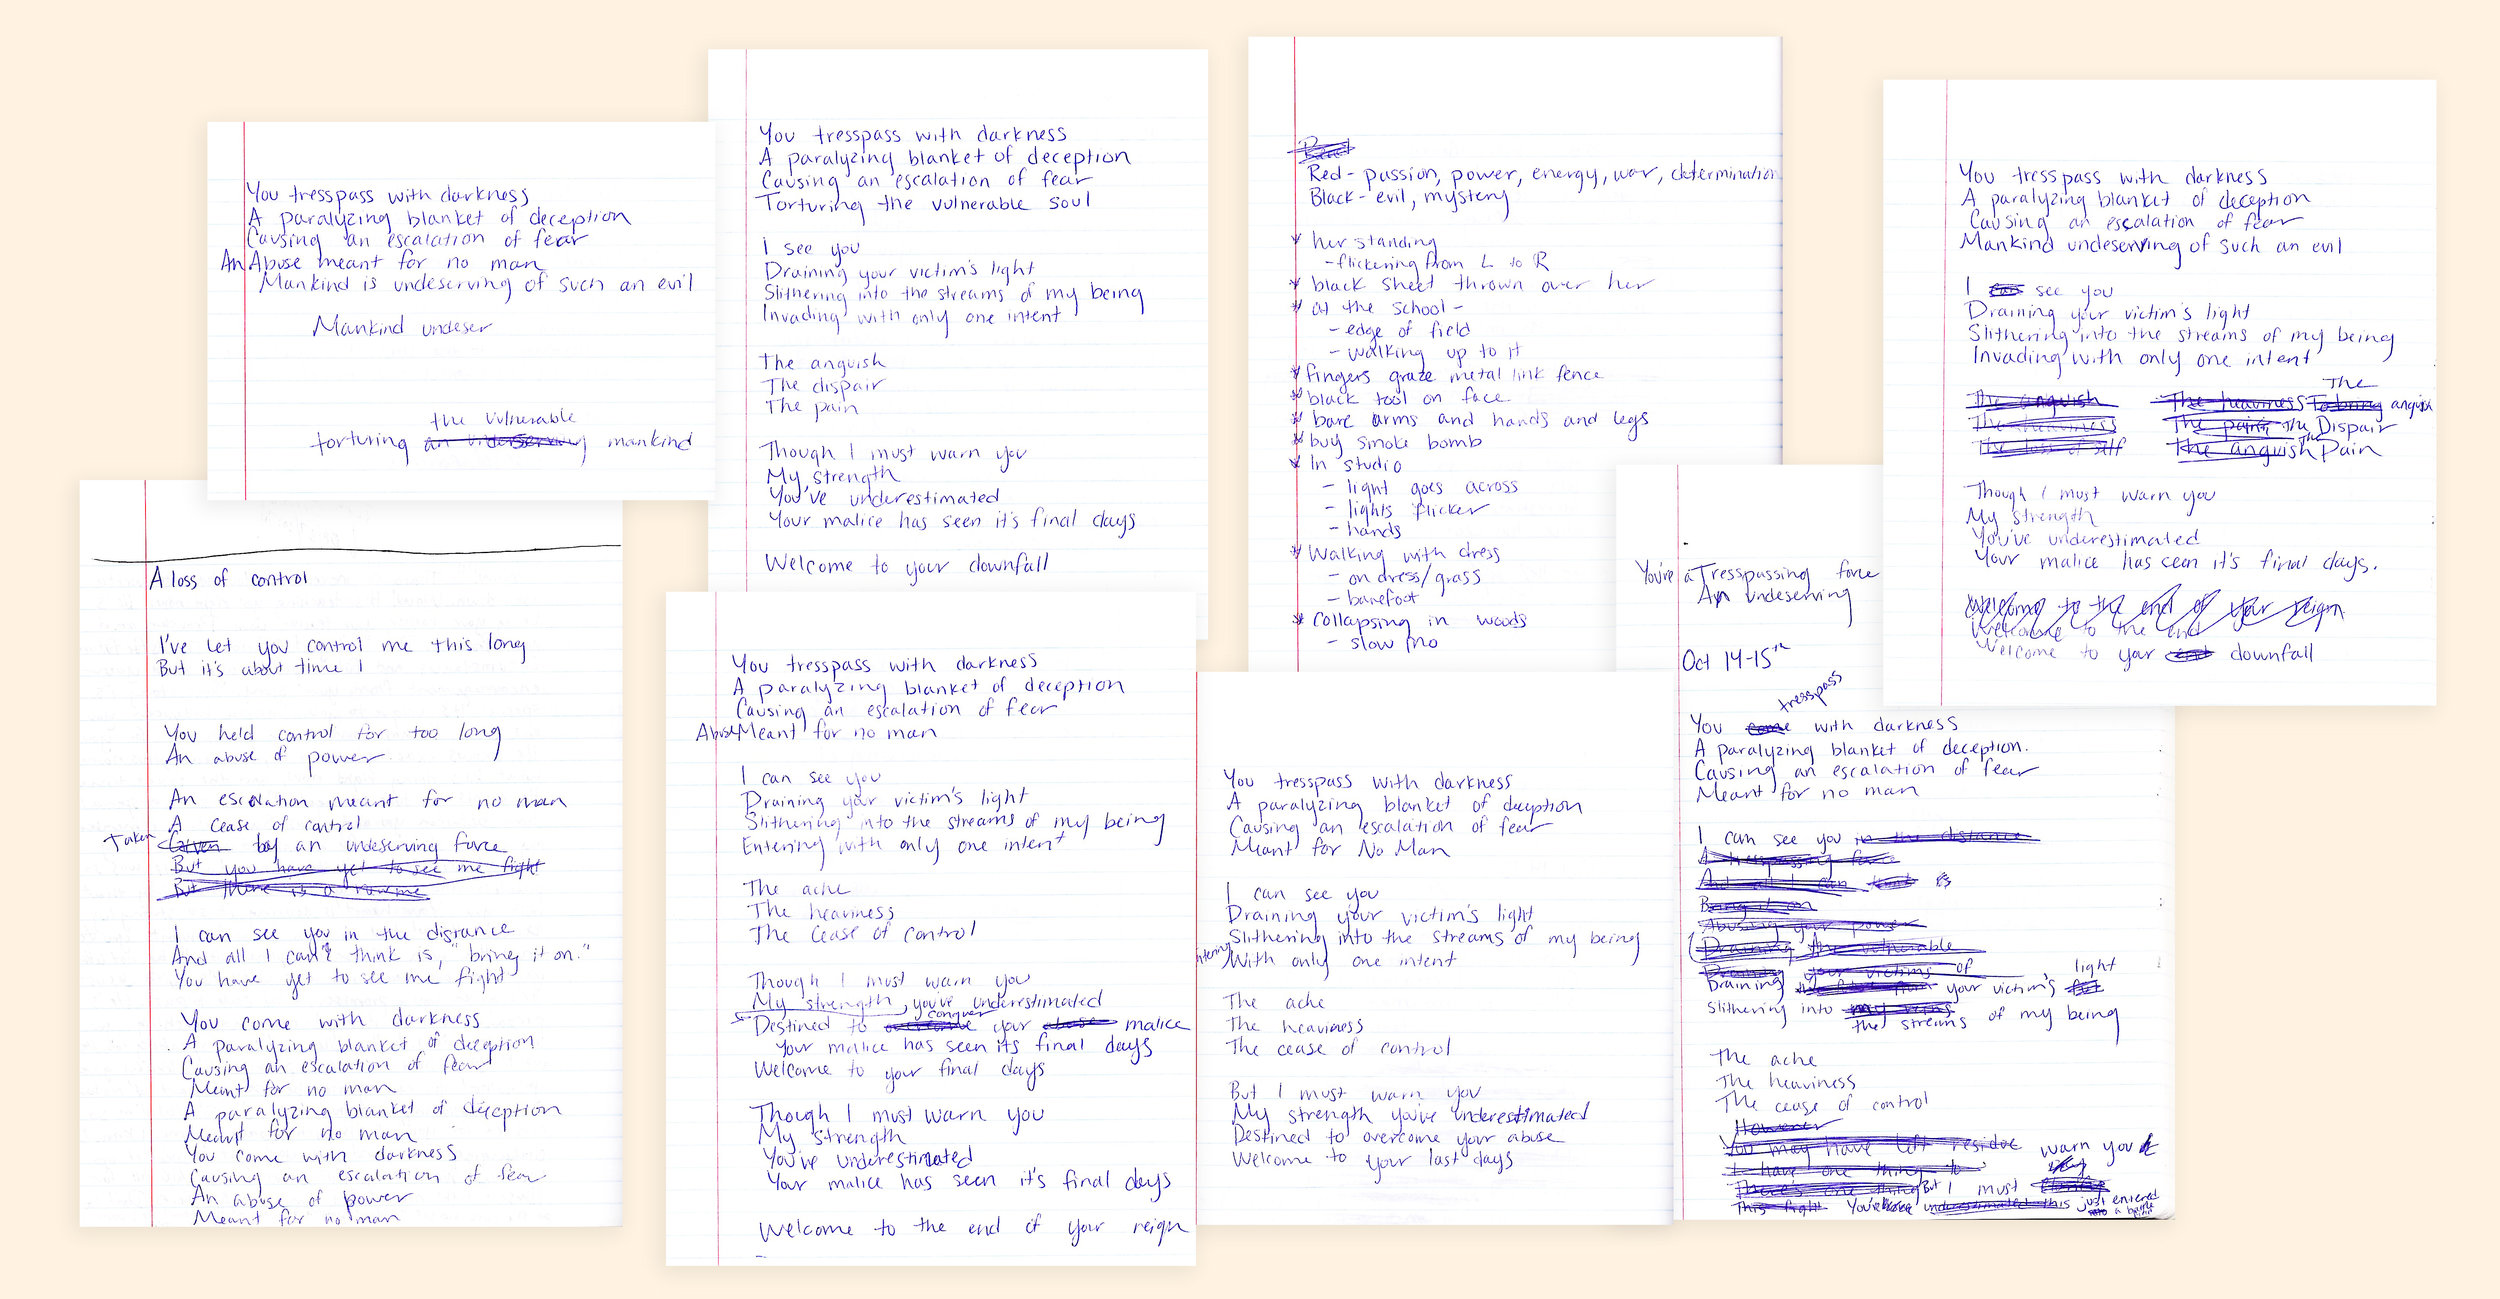 You tresspass with darkness
A paralyzing blanket of deception
Causing an escalation of fear
An Abuse meant for no man
Mankind is undeserving of such an evil
Mankind undeser
the vulnerable
torturing an underserving mankind
A loss of control
I've let you control me this long
But it's about time I
You held control for too long
An abuse of power
An escalation meant for no man
A cease of control
Taken Given by an undeserving force
But you have yet to see me fight
But there is a
I can see you in the distance
And all I can think is, "bring it on."
You have yet to see me fight
You come with darkness
A paralyzing blanket of deception
Causing an escalation of fear
Meant for no man
A paralyzing blanket of deception
Meant for no man
You come with darkness
Causing an escalation of fear
An abuse of power
Meant for no man
You tresspass with darkness
A paralyzing blanket of deception
Causing an escalation of fear
Torturing the vulnerable soul
I see you
Draining your victim's light
Slithering into the streams of my being
Invading with only one intent
The anguish
The dispair
The pain
Though I must warn you
My strength
You've underestimated
Your malice has seen it's final days
Welcome to your downfall
You tresspass with darkness
A paralyzing blanket of deception
Causing an escalation of fear
Abuse Meant for no man
I can see you
Draining your victim's light
Slithering into the streams of my being
Entering with only one intent
The ache
The heaviness
The cease of control
Though I must warn you
My strength, you've underestimated
conquer
Destined to overcome your abuse malice
Your malice has seen its final days
Welcome to your final days
Though I must warn you
My strength
You've underestimated
Your malice has seen it's final days
Welcome to the end of your reign
Red - passion, power, energy, war, determination
Black - evil, mystery
her standing
- flickering from L to R
black sheet thrown over her
at the school -
- edge of field
- walking up to it
fingers graze metal link fence
black tool on face
bare arms and hands and legs
buy smoke bomb
In studio
- light goes across
- lights flicker
- hands
Walking with dress
- on dress/grass
- barefoot
Collapsing in woods
- slow mo
You tresspass with darkness
A paralyzing blanket of deception
Causing an escalation of fear
Meant for No Man
I can see you
Draining your victim's light
Slithering into the streams of my being
With only one intent
The ache
The heaviness
The cease of control
But I must warn you
My strength you've underestimated
Destined to overcome your abuse
Welcome to your last days
You're a Tresspassing force
An undeserving
Oct 14-15th
tresspass
You come with darkness
A paralyzing blanket of deception.
Causing an escalation of fear
Meant for no man
I can see you in the distance
A tresspassing force
And all I can
Bring it on
Abusing your power
Draining the vulnerable
Draining your victims of
light
Draining your victim's
Slithering into my veins
the streams of my being
The ache
The heaviness
The cease of control
However
You may have left residue warn you
I have one thing to
There's one thing But I must
This fight You've underestimated this just entered
a battle
You tresspass with darkness
A paralyzing blanket of deception
Causing an escalation of fear
Mankind undeserving of such an evil
I can see you
Draining your victim's light
Slithering into the streams of my being
Invading with only one intent
The
The anguish The heaviness To bring anguish
The heaviness The pain The Dispair
The loss of self The anguish The Pain
Though I must warn you
My strength
You've underestimated
Your malice has seen it's final days.
Welcome to the end of your reign
Welcome to the end
Welcome to your end downfall